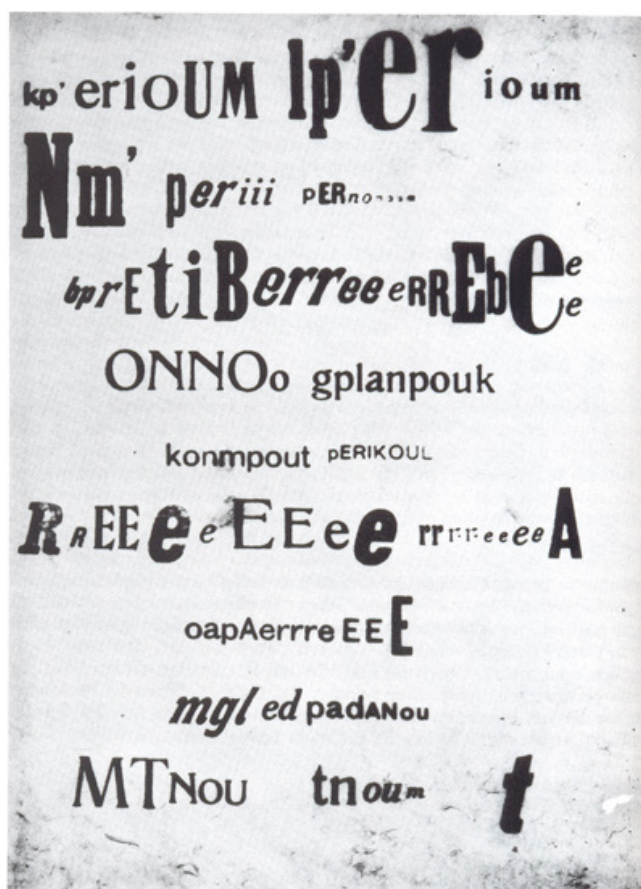 kp' erioUM lp'er ioum
Nm' periii pERno-›››
bprEtiBerreeeRREbeee
ONNOo gplanpouk
konmpout pERIKOUL
RREEeeEEee rrrreeeeA
oapAerrreEEE
mgl ed padANou
MTNou tnoum t